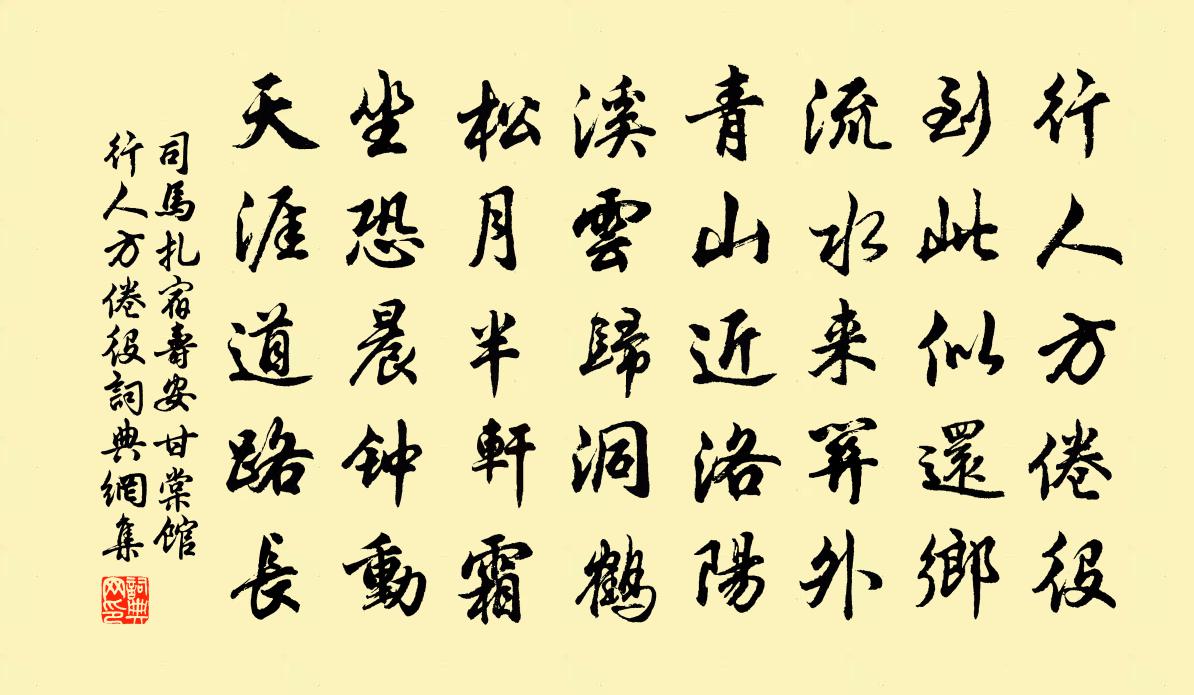 行人方倦役
到此似還鄉
流水来關外
青山近洛陽
溪雲歸洞鶴
松月半軒霜
坐恐晨钟動
天涯道路長
司馬扎宿壽安甘棠館
行人方倦役詞典網集
詞典
网印